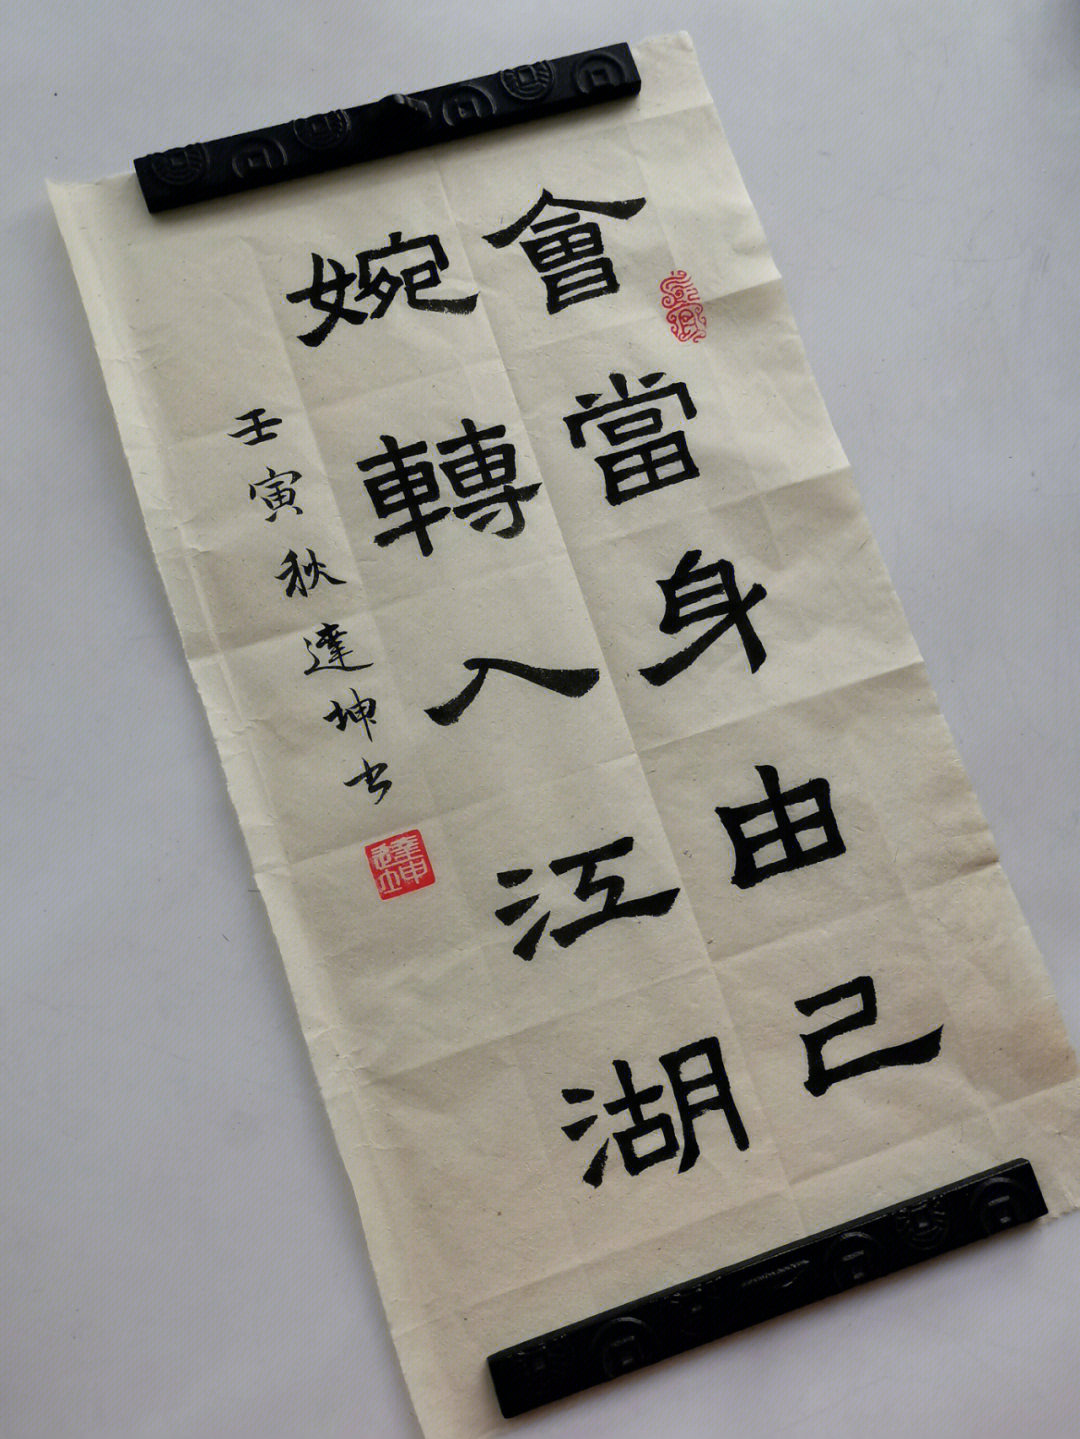 會當身由己
婉轉入江湖
壬寅秋達坤书